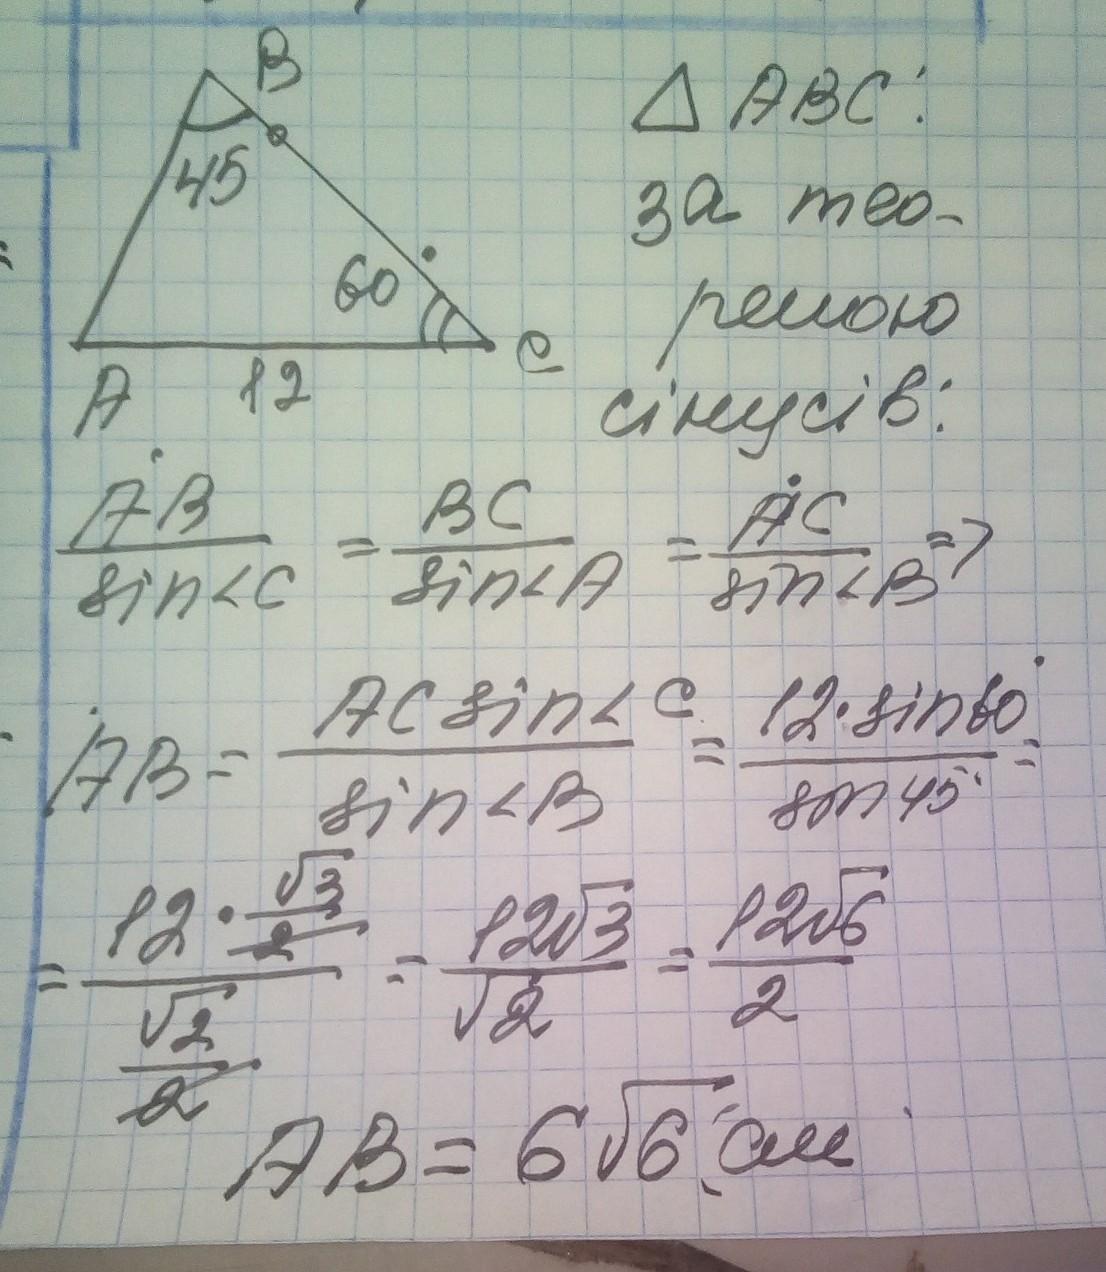 B
△ABC:
45
за тео-
60
ремою
A 12 C
сінусів:
AB/sin<C = BC/sin<A = AC/sin<B =>
AB = AC sin<C/sin<B = 12·sin60°/sin45° =
= 12·√3/2/√2/2 = 12√3/√2 = 12√6/2
AB = 6√6 см